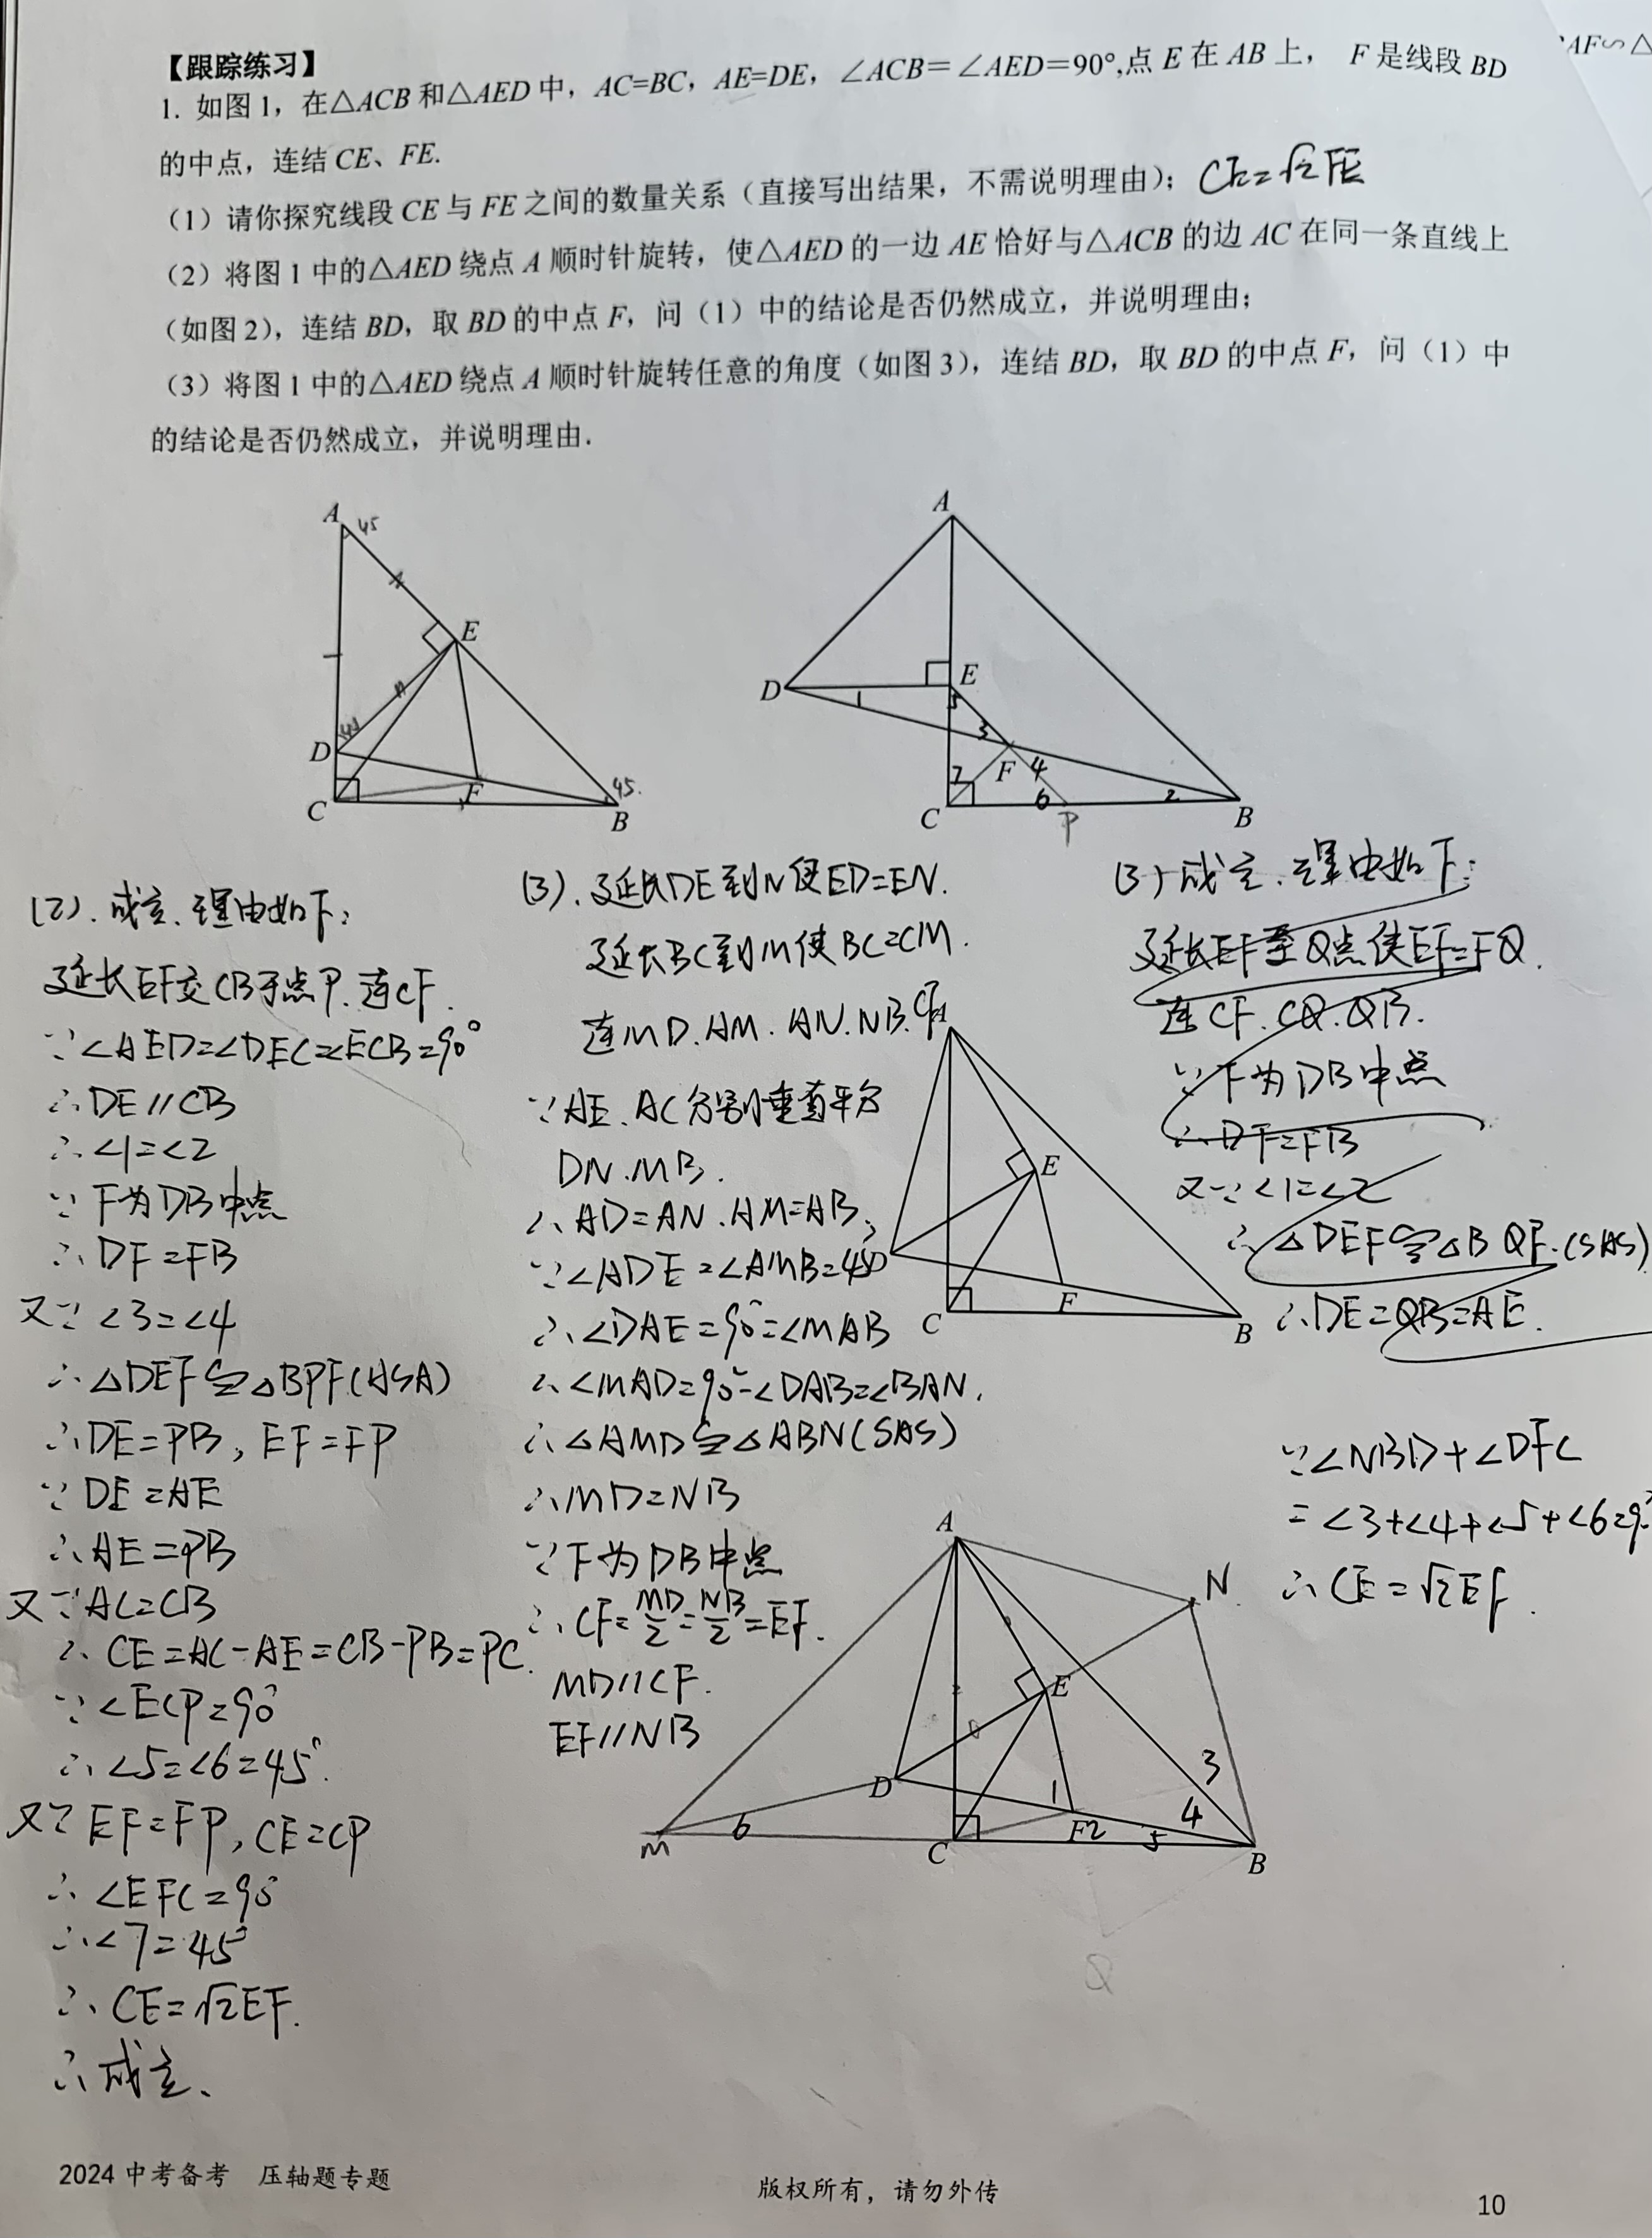 【跟踪练习】
1. 如图 1，在△ACB 和△AED 中，AC=BC，AE=DE，∠ACB＝∠AED＝90°,点 E 在 AB 上， F 是线段 BD
的中点，连结 CE、FE.
（1）请你探究线段 CE 与 FE 之间的数量关系（直接写出结果，不需说明理由）； CE=√2FE
（2）将图 1 中的△AED 绕点 A 顺时针旋转，使△AED 的一边 AE 恰好与△ACB 的边 AC 在同一条直线上
（如图 2），连结 BD，取 BD 的中点 F，问（1）中的结论是否仍然成立，并说明理由；
（3）将图 1 中的△AED 绕点 A 顺时针旋转任意的角度（如图 3），连结 BD，取 BD 的中点 F，问（1）中
的结论是否仍然成立，并说明理由．
AF∽△
A
45
E
45
D
C
F
45.
B
A
D
E
1
5
3
7
F
4
6
2
C
P
B
(2). 成立、理由如下:
延长EF交CB于点P. 连CF.
∵∠AED=∠DEC=∠ECB=90°
∴DE//CB
∴∠1=∠2
∵F为DB中点
∴DF=FB
又∵∠3=∠4
∴△DEF≌△BPF(ASA)
∴DE=PB, EF=FP
∵DE=AE
∴AE=PB
又∵AC=CB
∴CE=AC-AE=CB-PB=PC.
∵∠ECP=90°
∴∠5=∠6=45°.
又∵EF=FP, CE=CP
∴∠EFC=90°
∴∠7=45°
∴CE=√2EF.
∴成立、
(3). 延长DE到N使ED=EN.
延长BC到M使BC=CM.
连MD.AM.AN.NB.CF
∵AE. AC分别垂直平分
DN.MB.
∴AD=AN.AM=AB,
∵∠ADE=∠AMB=45°
∴∠DAE=90°=∠MAB
∴∠MAD=90°-∠DAB=∠BAN.
∴△AMD≌△ABN(SAS)
∴MD=NB
∵F为DB中点
∴CF=MD/2=NB/2=EF.
MD//CF.
EF//NB
(3) 成立、理由如下:
延长EF至Q点使EF=FQ.
连CF.CQ.QB.
∵F为DB中点
∴DF=FB
又∵∠1=∠2
∴△DEF≌△BQF.(SAS)
∴DE=QB=AE.
∵∠NBD+∠DFC
=∠3+∠4+∠5+∠6=9
∴CE=√2EF.
A
E
D
C
F
B
A
N
E
D
3
1
4
6
F2
5
M
C
B
Q
2024 中考备考 压轴题专题
版权所有，请勿外传
10